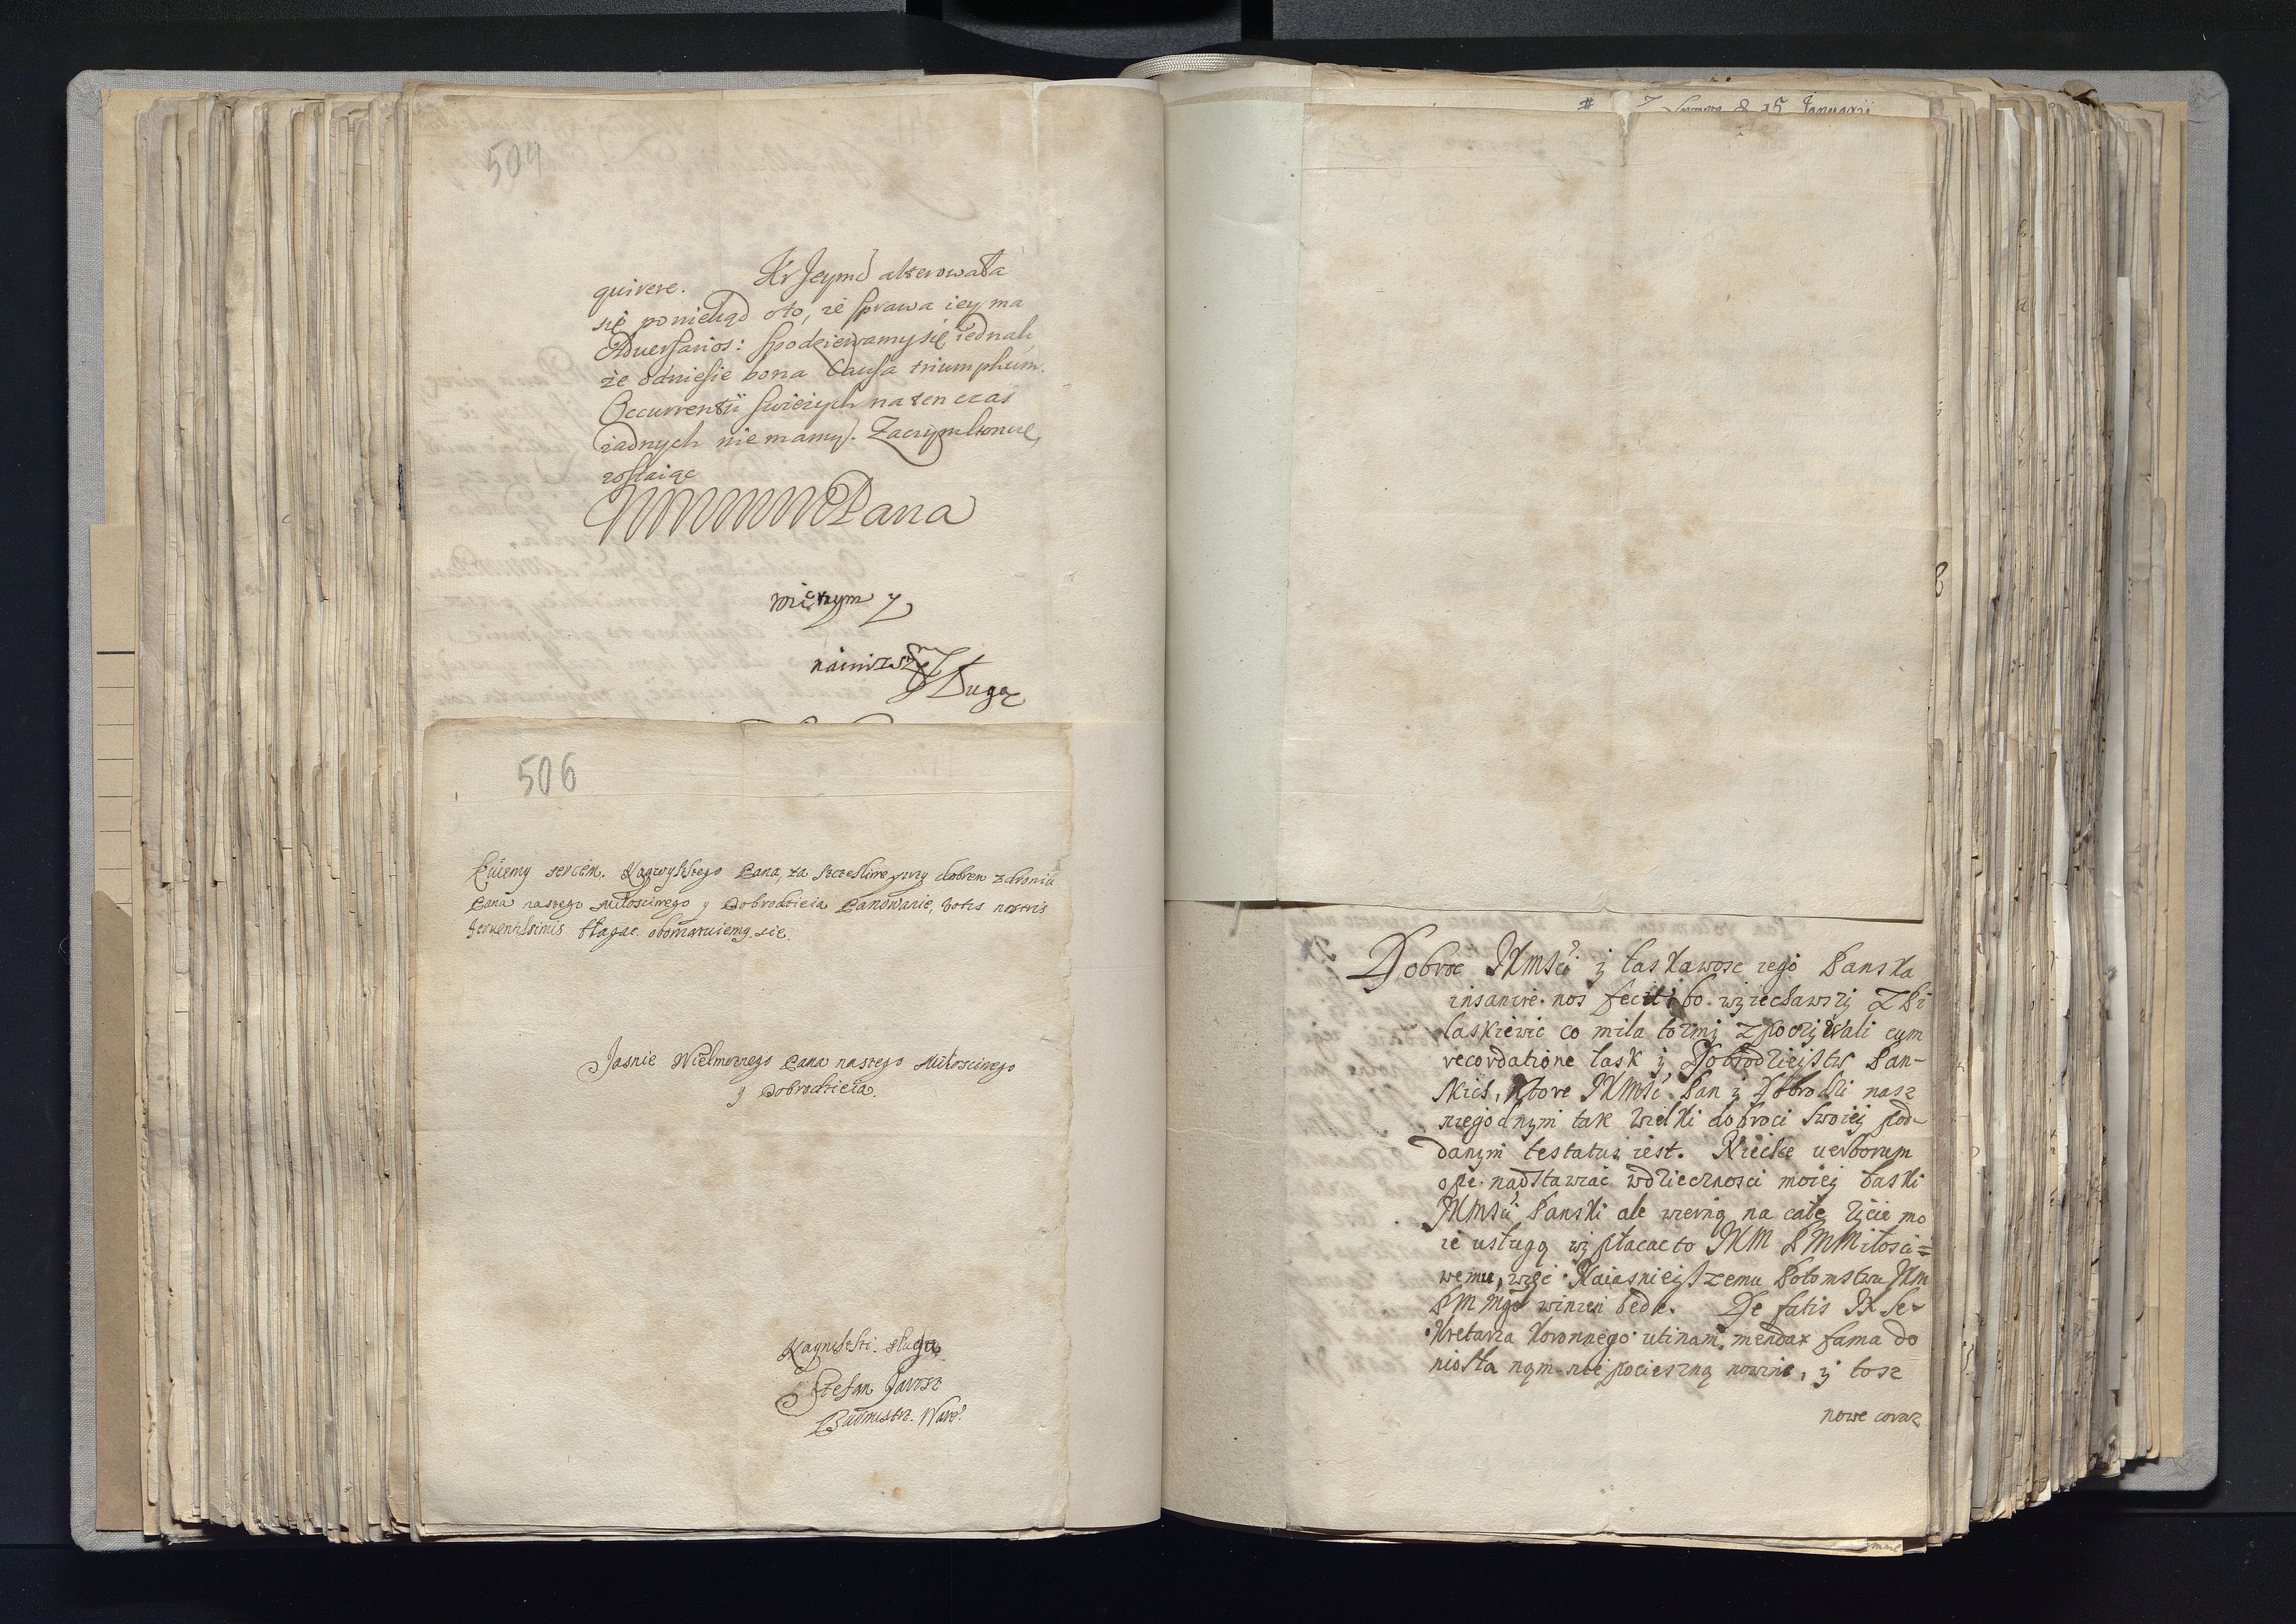 504
quirere. Kr Jeymć alterowała
się poniekąd oto, że sprawa iey ma
Adversarios: spodziewamy się iednak,
że odniesie bona Causa triumphum.
Occurrentÿ świeżych na ten czas
żadnych nie mamy. Zaczym konczę,
zostaiąc
WMMMM Pana
nainizszym
Sługą
506
sercem. Naywyższego Pana, za szczesliwe przy dobrem zdroniu
Pana naszego Miłosciwego y Dobrodzieia Panowanie, votis nostris
ferventissimis błagac obowiązuiemy się.
Jasnie Wielmoznego Pana naszego Miłosciwego
y Dobrodzieia.
Naynisszi sługa
Stefan Jarosz
Burmistrz. War.
15 Januarij
Dobroc JKMSci y łaskawosc iego Panska
insanire nos fecit, bo wyiechawszy z Bi
łaskiewic co mila tozmy zpoczywali cum
recordatione łask y Dobrodzieystw Pan-
skich, ktore JKMSc Pan y Dobrodzi nasz
niegodnym tak wielki dobroci swoiey pod-
danym testatus iest. Niechce verborum
ope nadstawiać wdziecznosci moiey łaski
JKMSci Panski ale wierną na całe życie mo
ie usługą wypłacac to JKM PMMiłosci=
wemu, więc Naiasnieyszemu Potomstwu JKM
PMMgo winien bede. De fatis JX Se-
kretarza koronnego utinam mendax fama do
niosła nam niepocieszną nowine, y tosz
nowe coraz